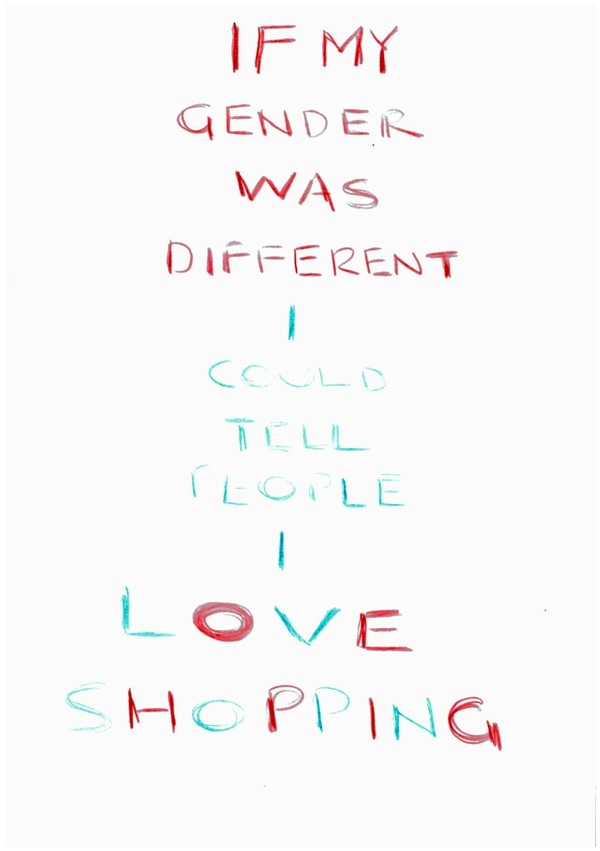 IF MY
GENDER
WAS
DIFFERENT
I
COULD
TELL
PEOPLE
I
LOVE
SHOPPING